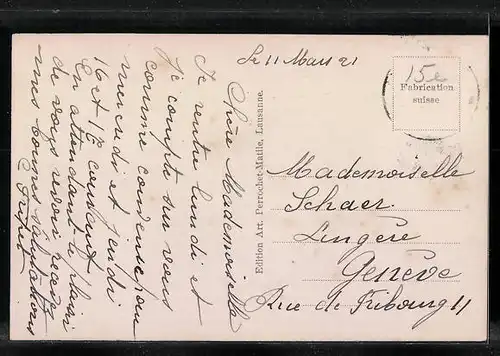 Le 11 Mars 21
Chère Mademoiselle
Je rentre lundi et
je compte sur vous
comme convenu pour
mercredi et jeudi
16 et 17 courant
En attendant le plaisir
de vous revoir recevez
mes bonnes salutations
Edition Art. Perrochet-Matile, Lausanne.
15 c
Fabrication
suisse
Mademoiselle
Schaer
Lingère
Genève
Rue de Fribourg 11